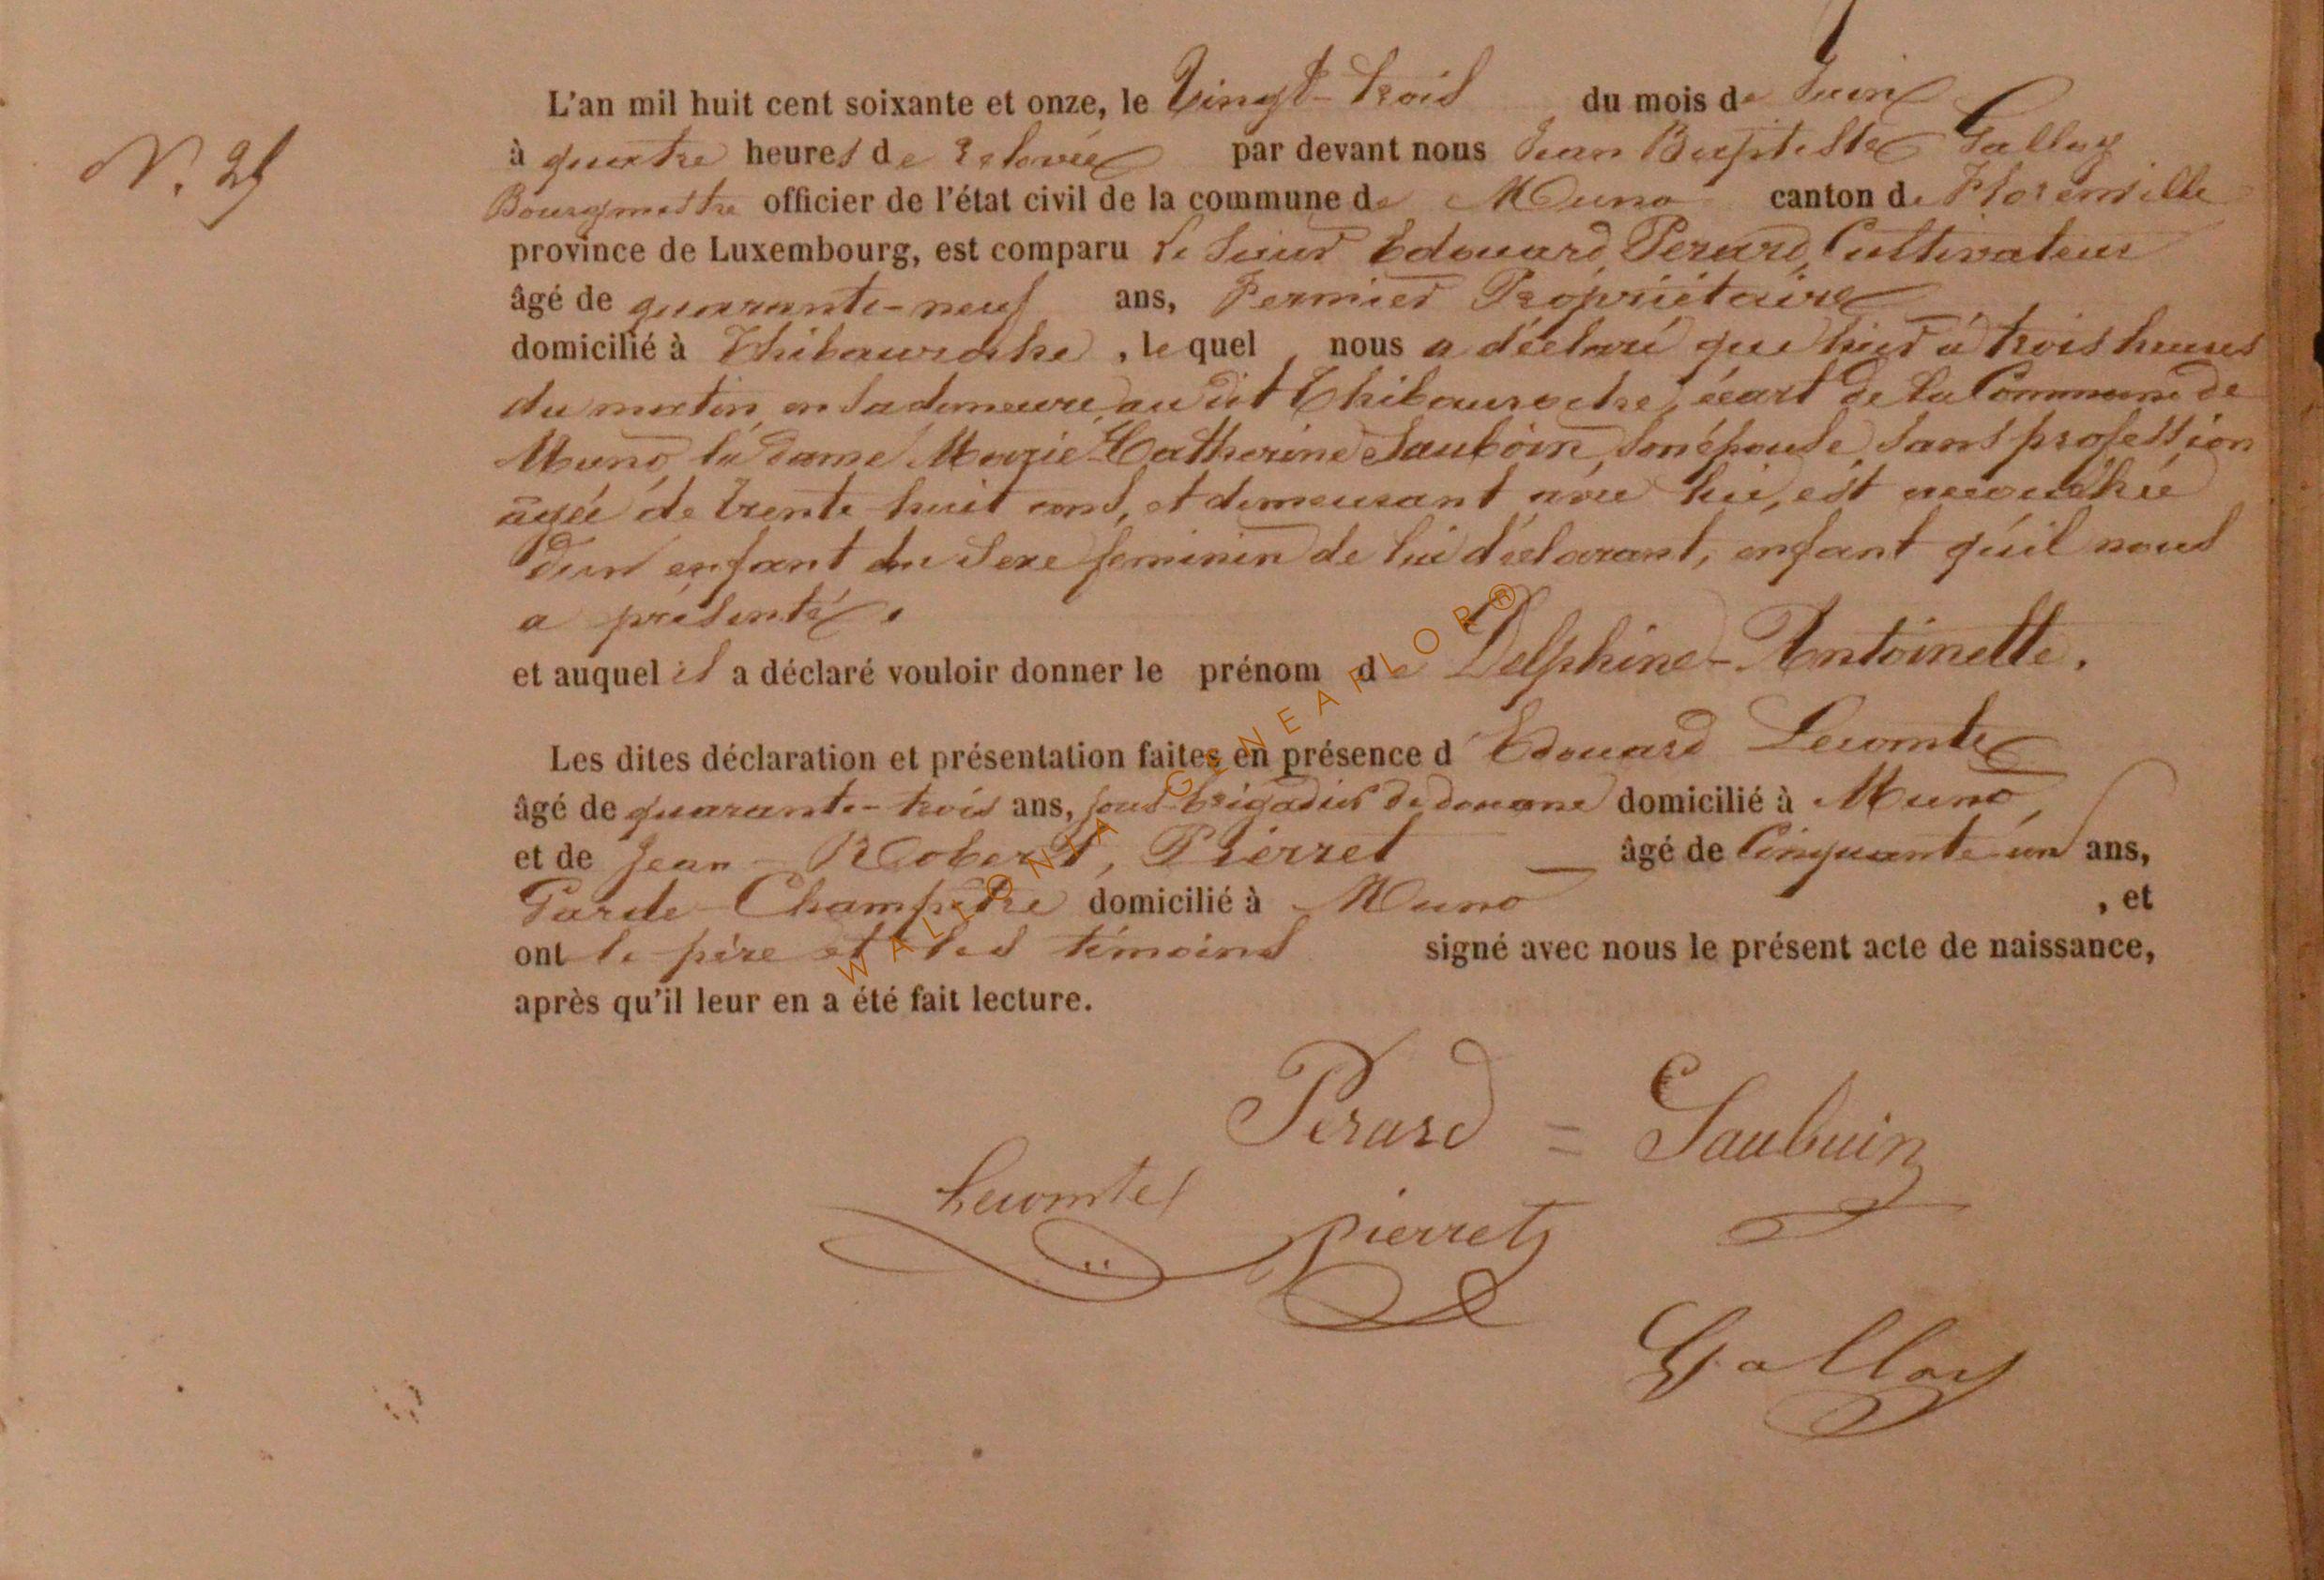 L'an mil huit cent soixante et onze, le Vingt-trois du mois de Juin
N. 25
à quatre heures de relevée par devant nous Jean Baptiste Galloy
Bourgmestre officier de l'état civil de la commune de Muno canton de Florenville
province de Luxembourg, est comparu le Sieur Edouard Perard, Cultivateur
âgé de quarante-neuf ans, Fermier Propriétaire
domicilié à Thibauroche, le quel nous a déclaré que hier à trois heures
du matin, en sa demeure, au dit Thibauroche, écart de la Commune de
Muno, la Dame Marie-Catherine Sauboin, son épouse, sans profession
agée de trente-huit ans, et demeurant avec lui, est accouchée
d'un enfant du Sexe feminin de lui déclarant, enfant qu'il nous
a présenté.
et auquel il a déclaré vouloir donner le prénom de Delphine-Antoinette.
Les dites déclaration et présentation faites en présence d'Edouard Lecomte
âgé de quarante-trois ans, sous-brigadier de douane domicilié à Muno,
et de Jean-Robert, Pierret âgé de Cinquante-un ans,
Garde-Champêtre domicilié à Muno, et
ont le père et les témoins signé avec nous le présent acte de naissance,
après qu'il leur en a été fait lecture.
Perard = Saubuin
Lecomte
Pierret
Galloy
WALLONIA GENEAFLOR®